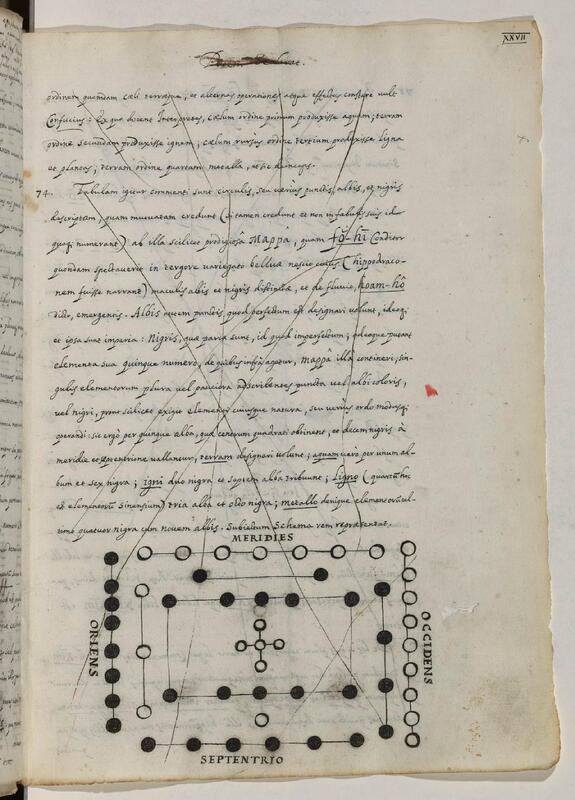 XXVII
ordinem quendam cæli terræque, et alternas operationes atque effectus constare vult
Confucius: Ex quo docent Interpretes, cælum ordine primum produxisse aquam; terram
ordine secundam produxisse ignem; cælum rursus ordine tertium produxisse ligna
et plantas; terram ordine quartam metalla, et sic deinceps.
74. Tabulam igitur commenti sunt circulis, seu verius punctis, albis, et nigris
descriptam, quam mutuatam credunt (si tamen credunt et non in fabulis suis id
quoq; numerant) ab illa scilicet prodigiosa Mappa, quam fŏ-hī Conditor
quondam spectaverit in tergore variegato belluæ nescio cuius (hippodraco-
nem fuisse narrant) maculis albis et nigris distincto, et de fluvio, hoam-hô
dicto, emergentis. Albis autem punctis, quod perfectum est designari volunt, ideoq;
et ipsa sunt imparia: Nigris, quæ paria sunt, id quod imperfectum; adeoque putant
elementa sua quinque numero, de quibus infra agetur, mappa illa contineri, sin-
gulis elementorum plura vel pauciora adscribentes puncta vel albi coloris,
vel nigri, prout scilicet exigit elementi cuiusque natura, seu verius ordo modusq;
operandi: sic ergo per quinque alba, quæ centrum quadrati obtinent, et decem nigris à
meridie et septentrione vallantur, terram designari volunt; aquam vero per unum al-
bum et sex nigra; igni duo nigra et septem alba tribuunt; Ligno (quartum hoc
est elementum Sinensium) tria alba et octo nigra; metallo denique elementorum ul-
timo quatuor nigra cum novem albis. Subiectum Schema rem repræsentat.
MERIDIES
ORIENS
OCCIDENS
SEPTENTRIO